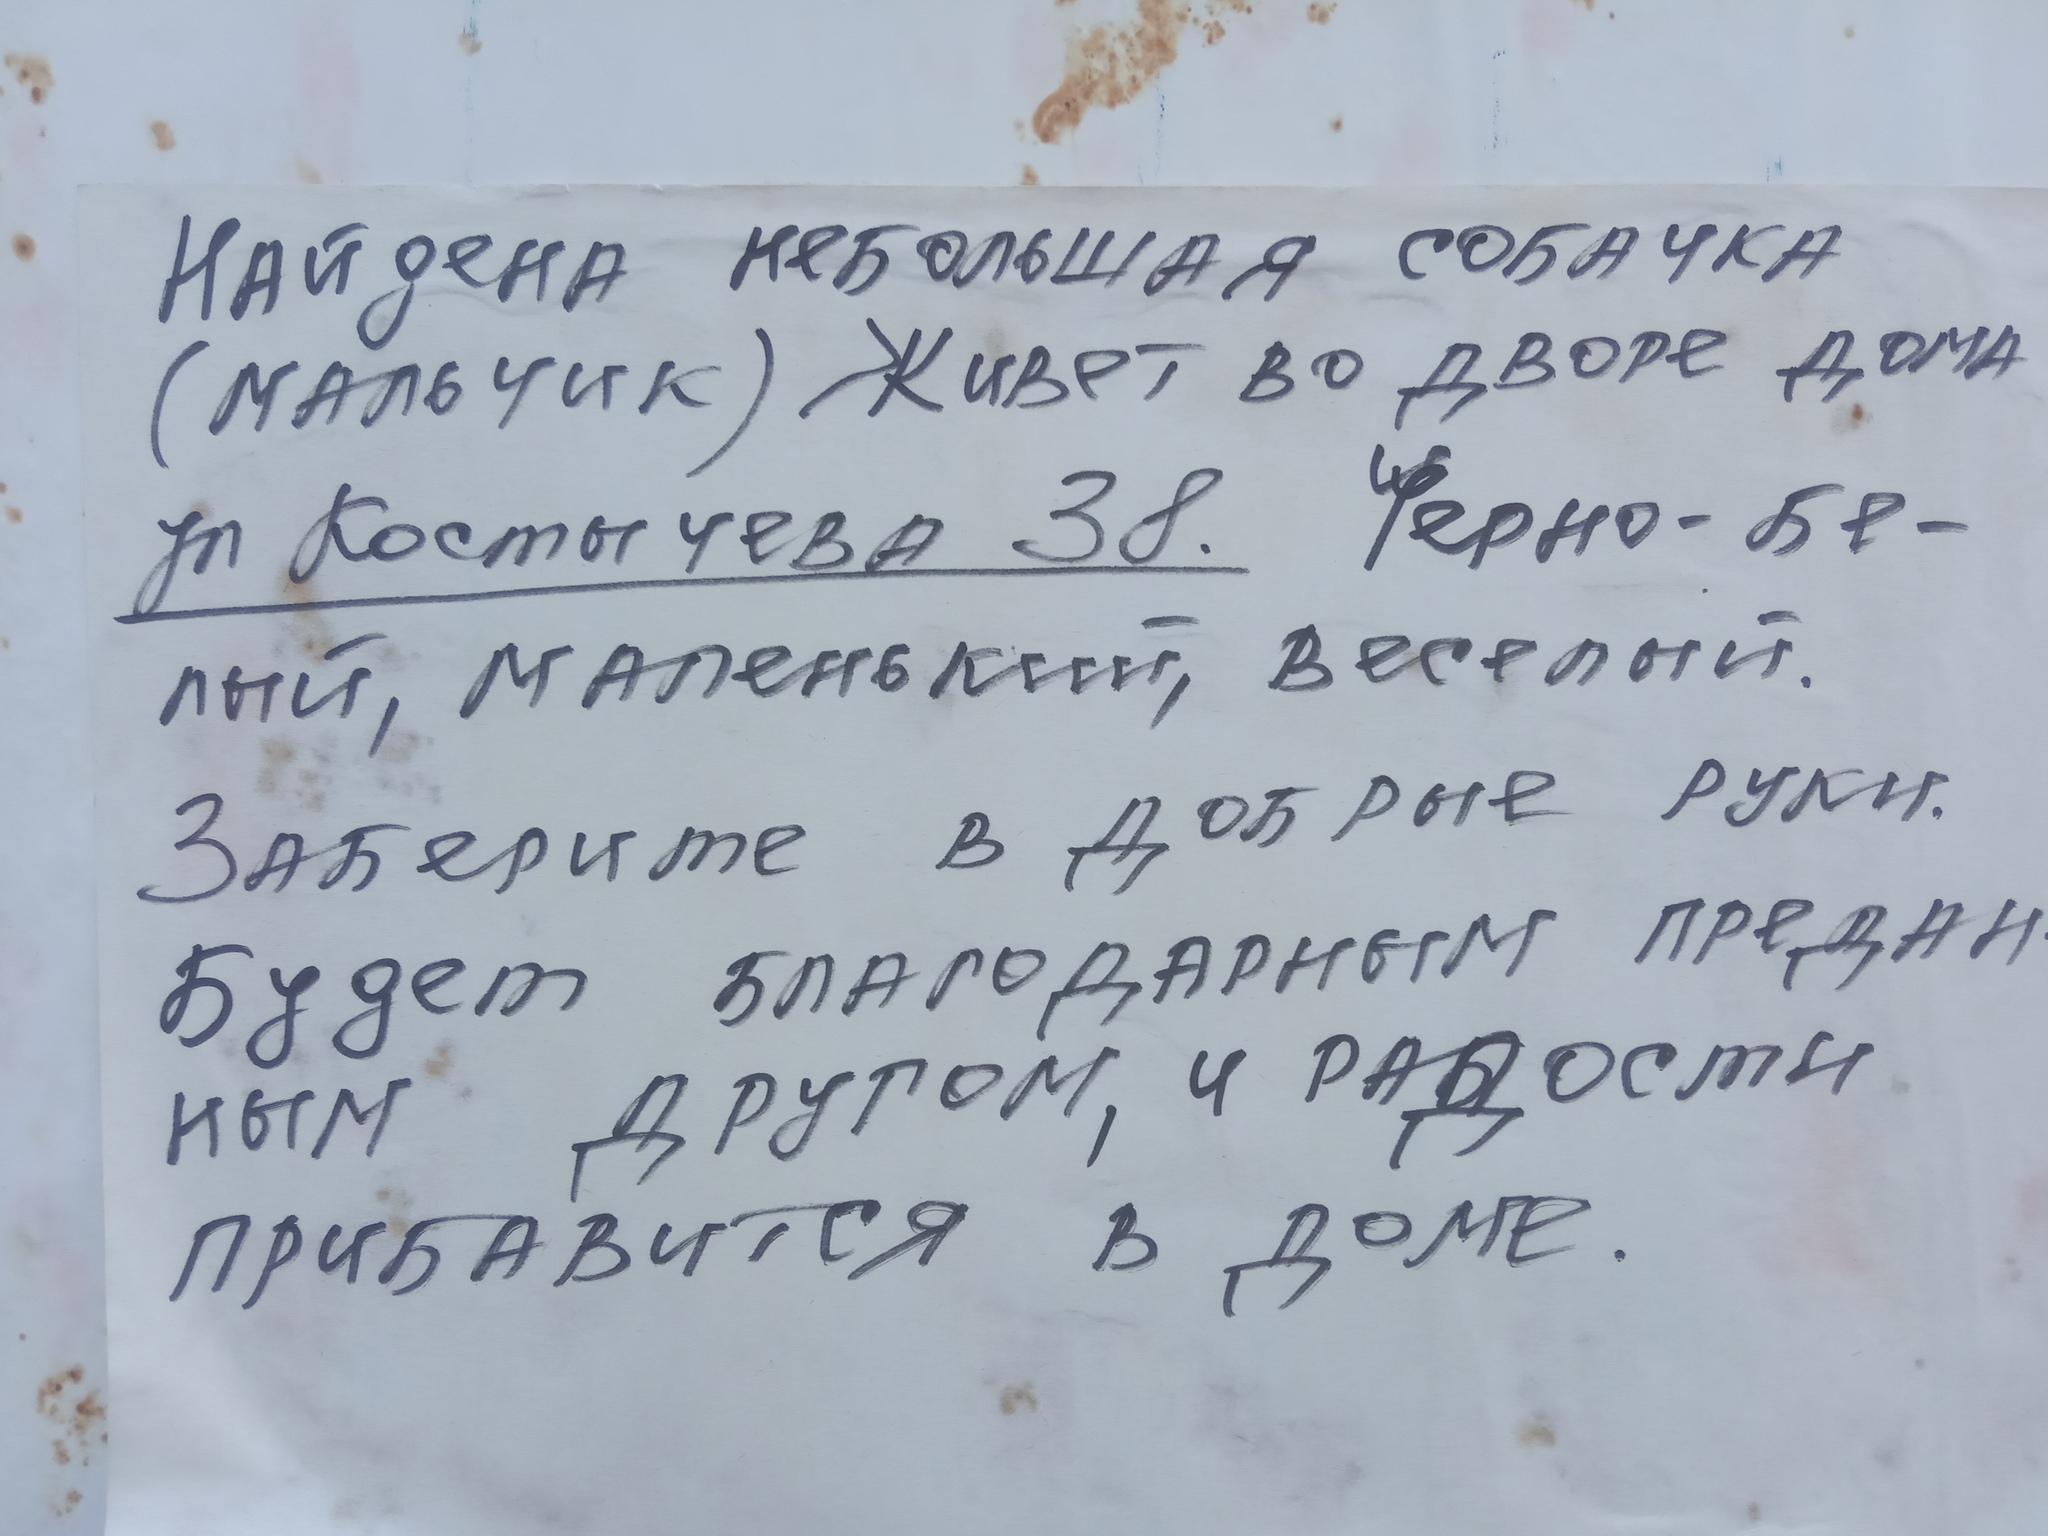 Найдена небольшая собачка
(мальчик) Живет во дворе дома
ул Костычева 38. Черно-бе-
лый, маленький, веселый.
Заберите в добрые руки.
Будет благодарным предан-
ным другом, и радости
прибавится в доме.